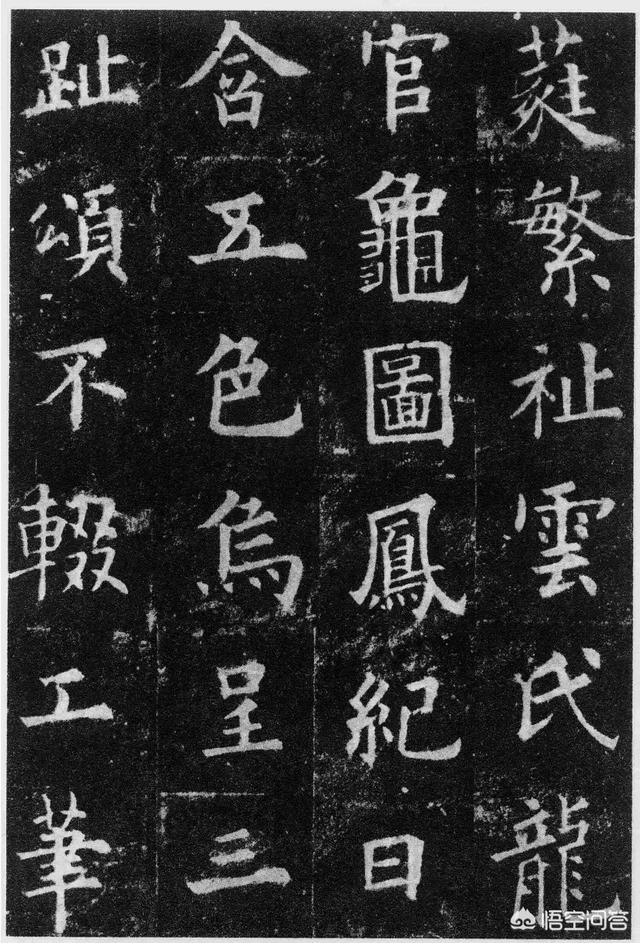 蕤繁祉雲氏龍
官龜圖鳳紀日
含五色烏呈三
趾頌不輟工筆
悟空问答